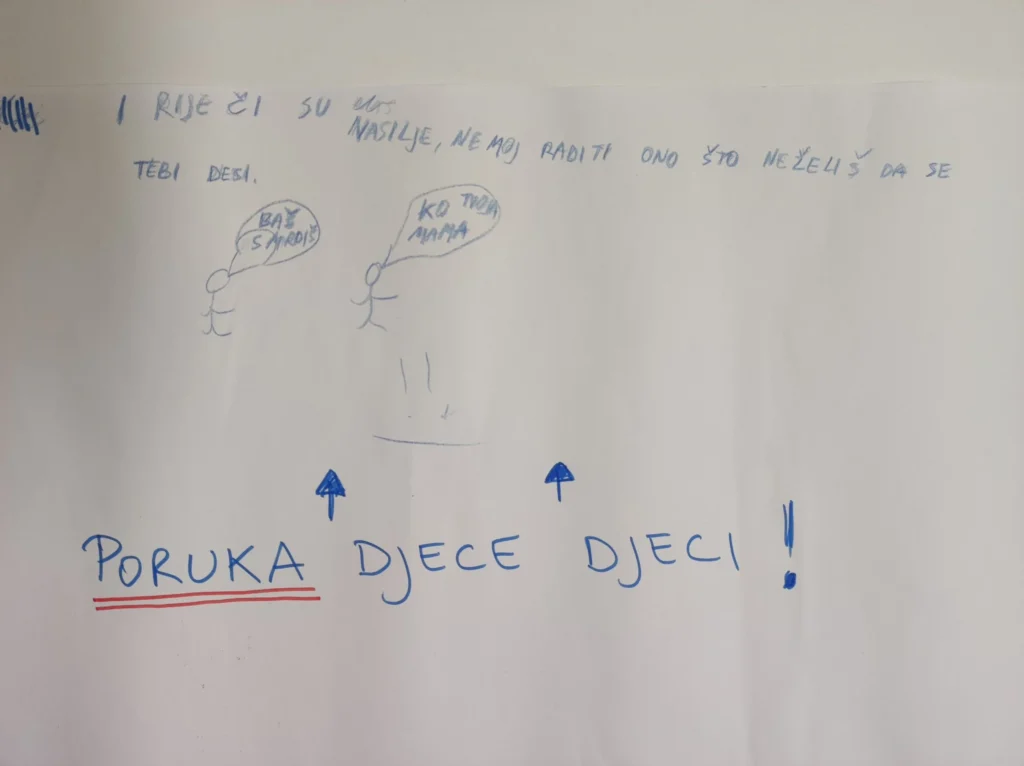 I RIJEČI SU
NASILJE, NEMOJ RADITI ONO ŠTO NEŽELIŠ DA SE
TEBI DESI.
BAŠ
SMRDIŠ
KO TVOJA
MAMA
PORUKA DJECE DJECI!